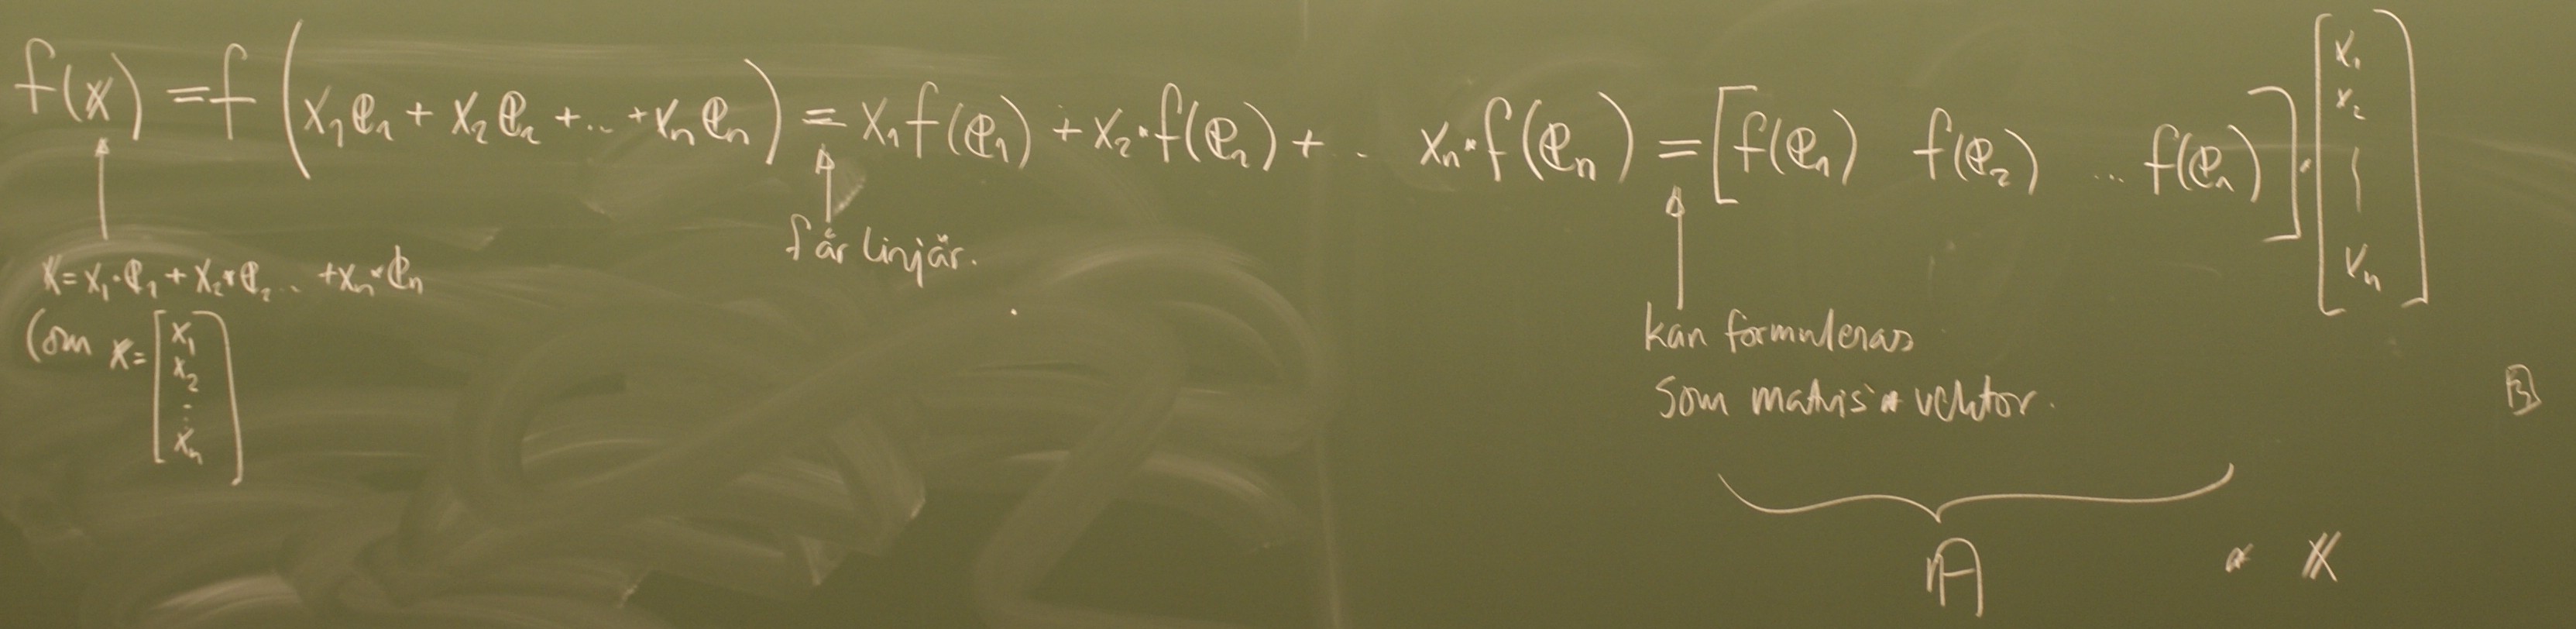 f(x) = f(x₁e₁ + x₂e₂ + .. + xₙeₙ) = x₁f(e₁) + x₂·f(e₂) + . xₙ·f(eₙ) = [f(e₁) f(e₂) ... f(eₙ)] · [x₁ x₂ ⋮ xₙ]
f är linjär.
x = x₁·e₁ + x₂·e₂ .. + xₙ·eₙ
(om x = [x₁ x₂ ⋮ xₙ]
kan formuleras
som matris * vektor.
A · x